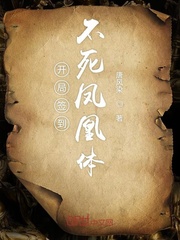 开局签到
不死凤凰体
著